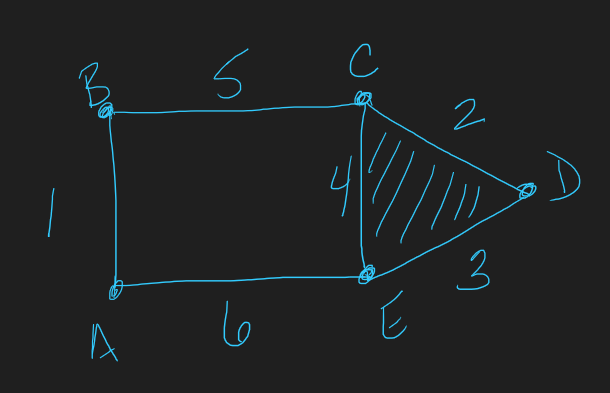 C
B
5
2
1
4
D
3
A
6
E